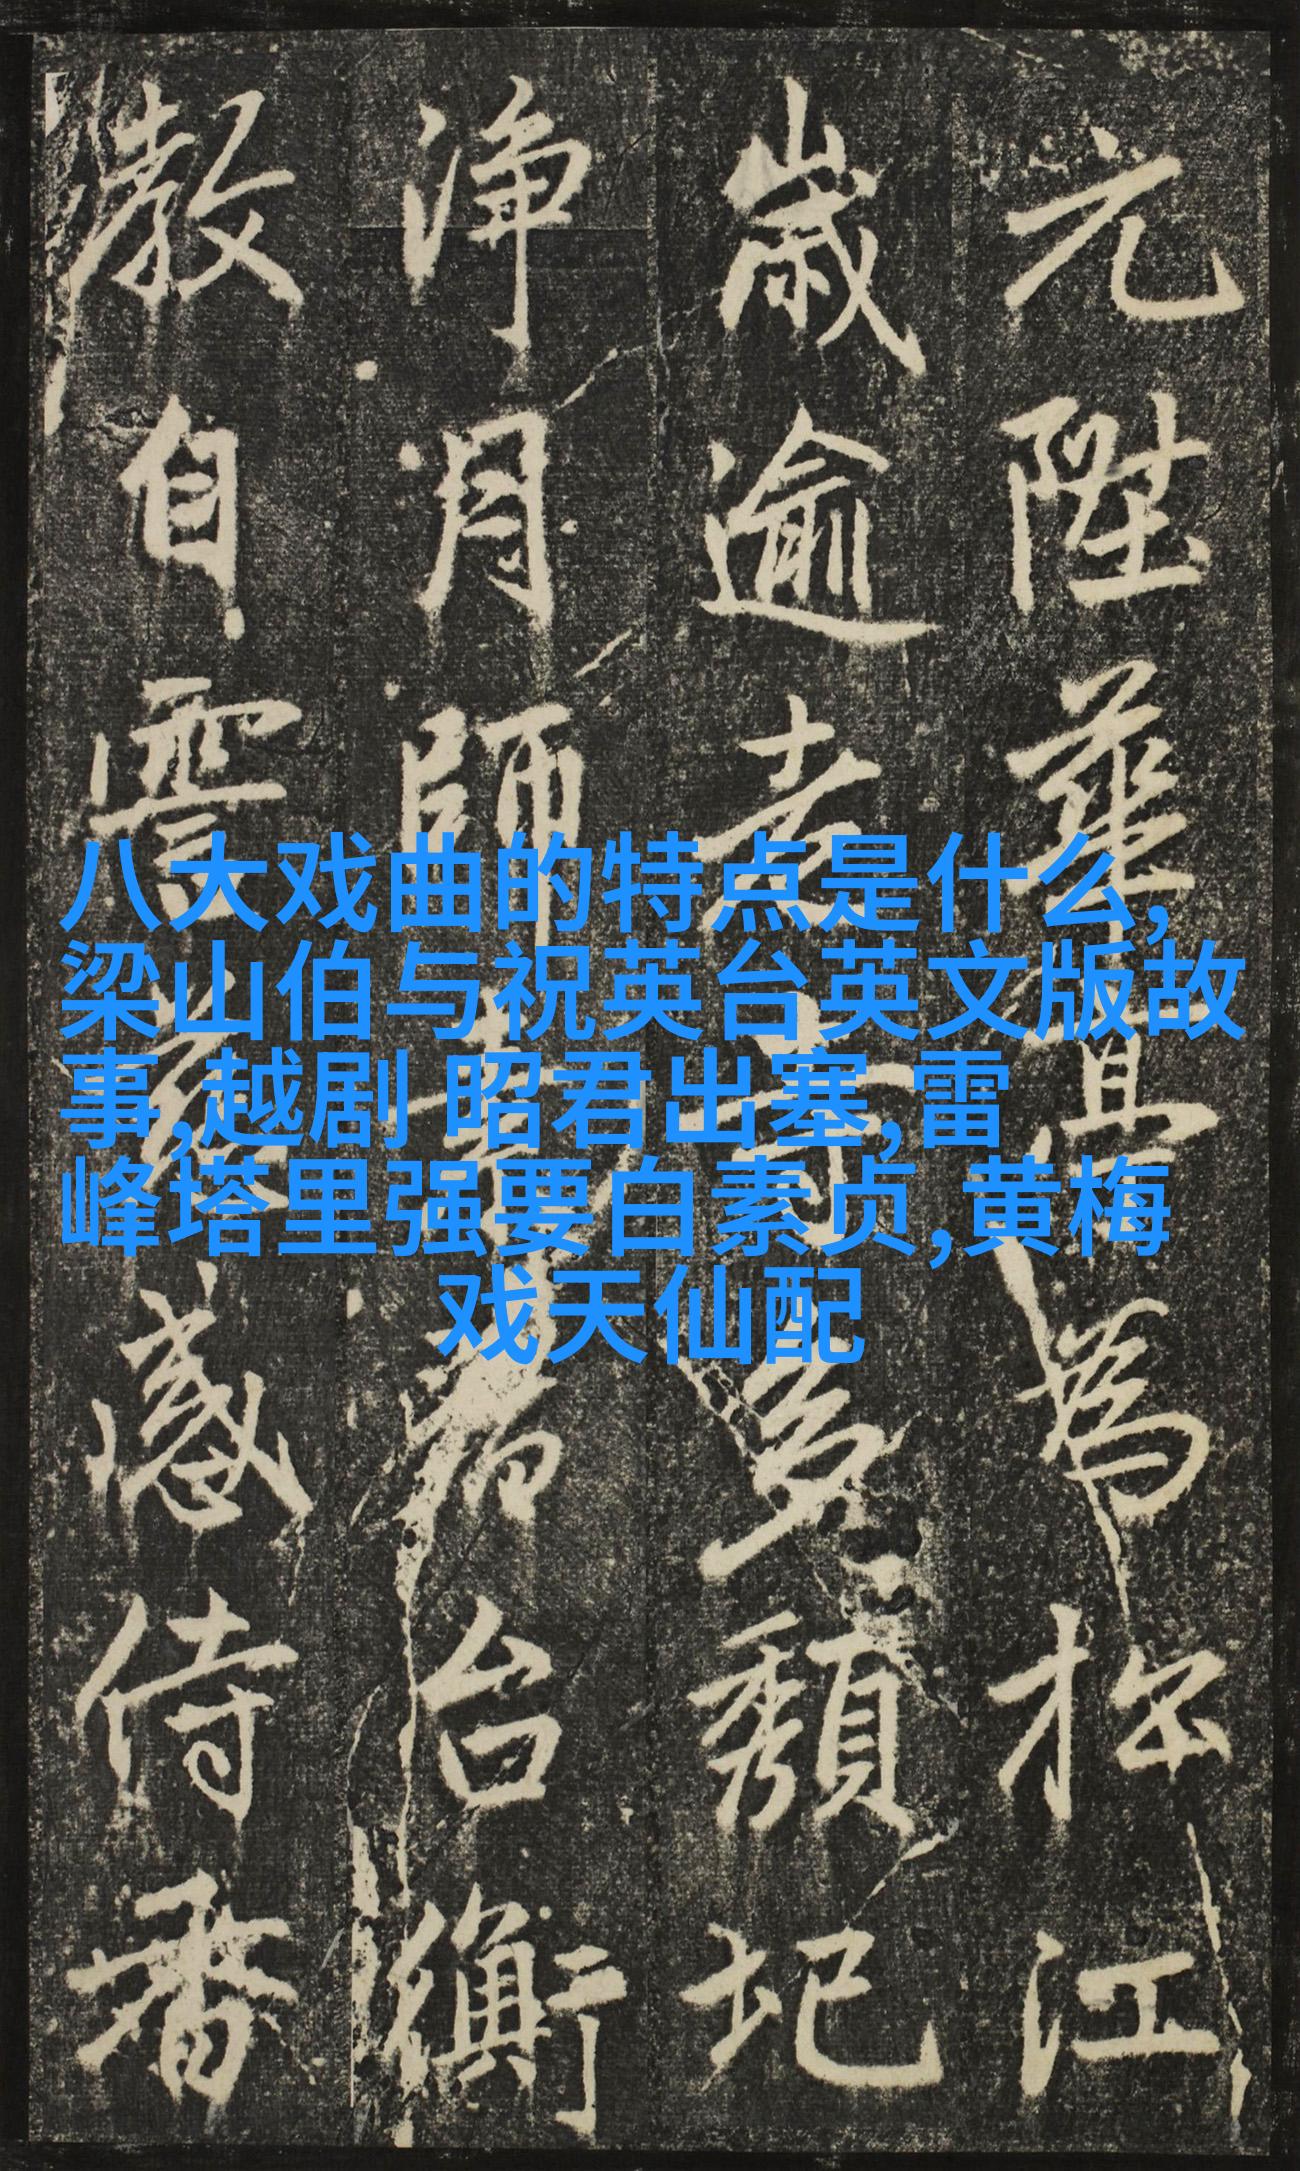 八大戏曲的特点是什么,
梁山伯与祝英台英文版故
事,越剧 昭君出塞,雷
峰塔里强要白素贞,黄梅
戏天仙配
元陛華
為於江
歲逾
多頹圮
淨月師
台衡
教自
感侍